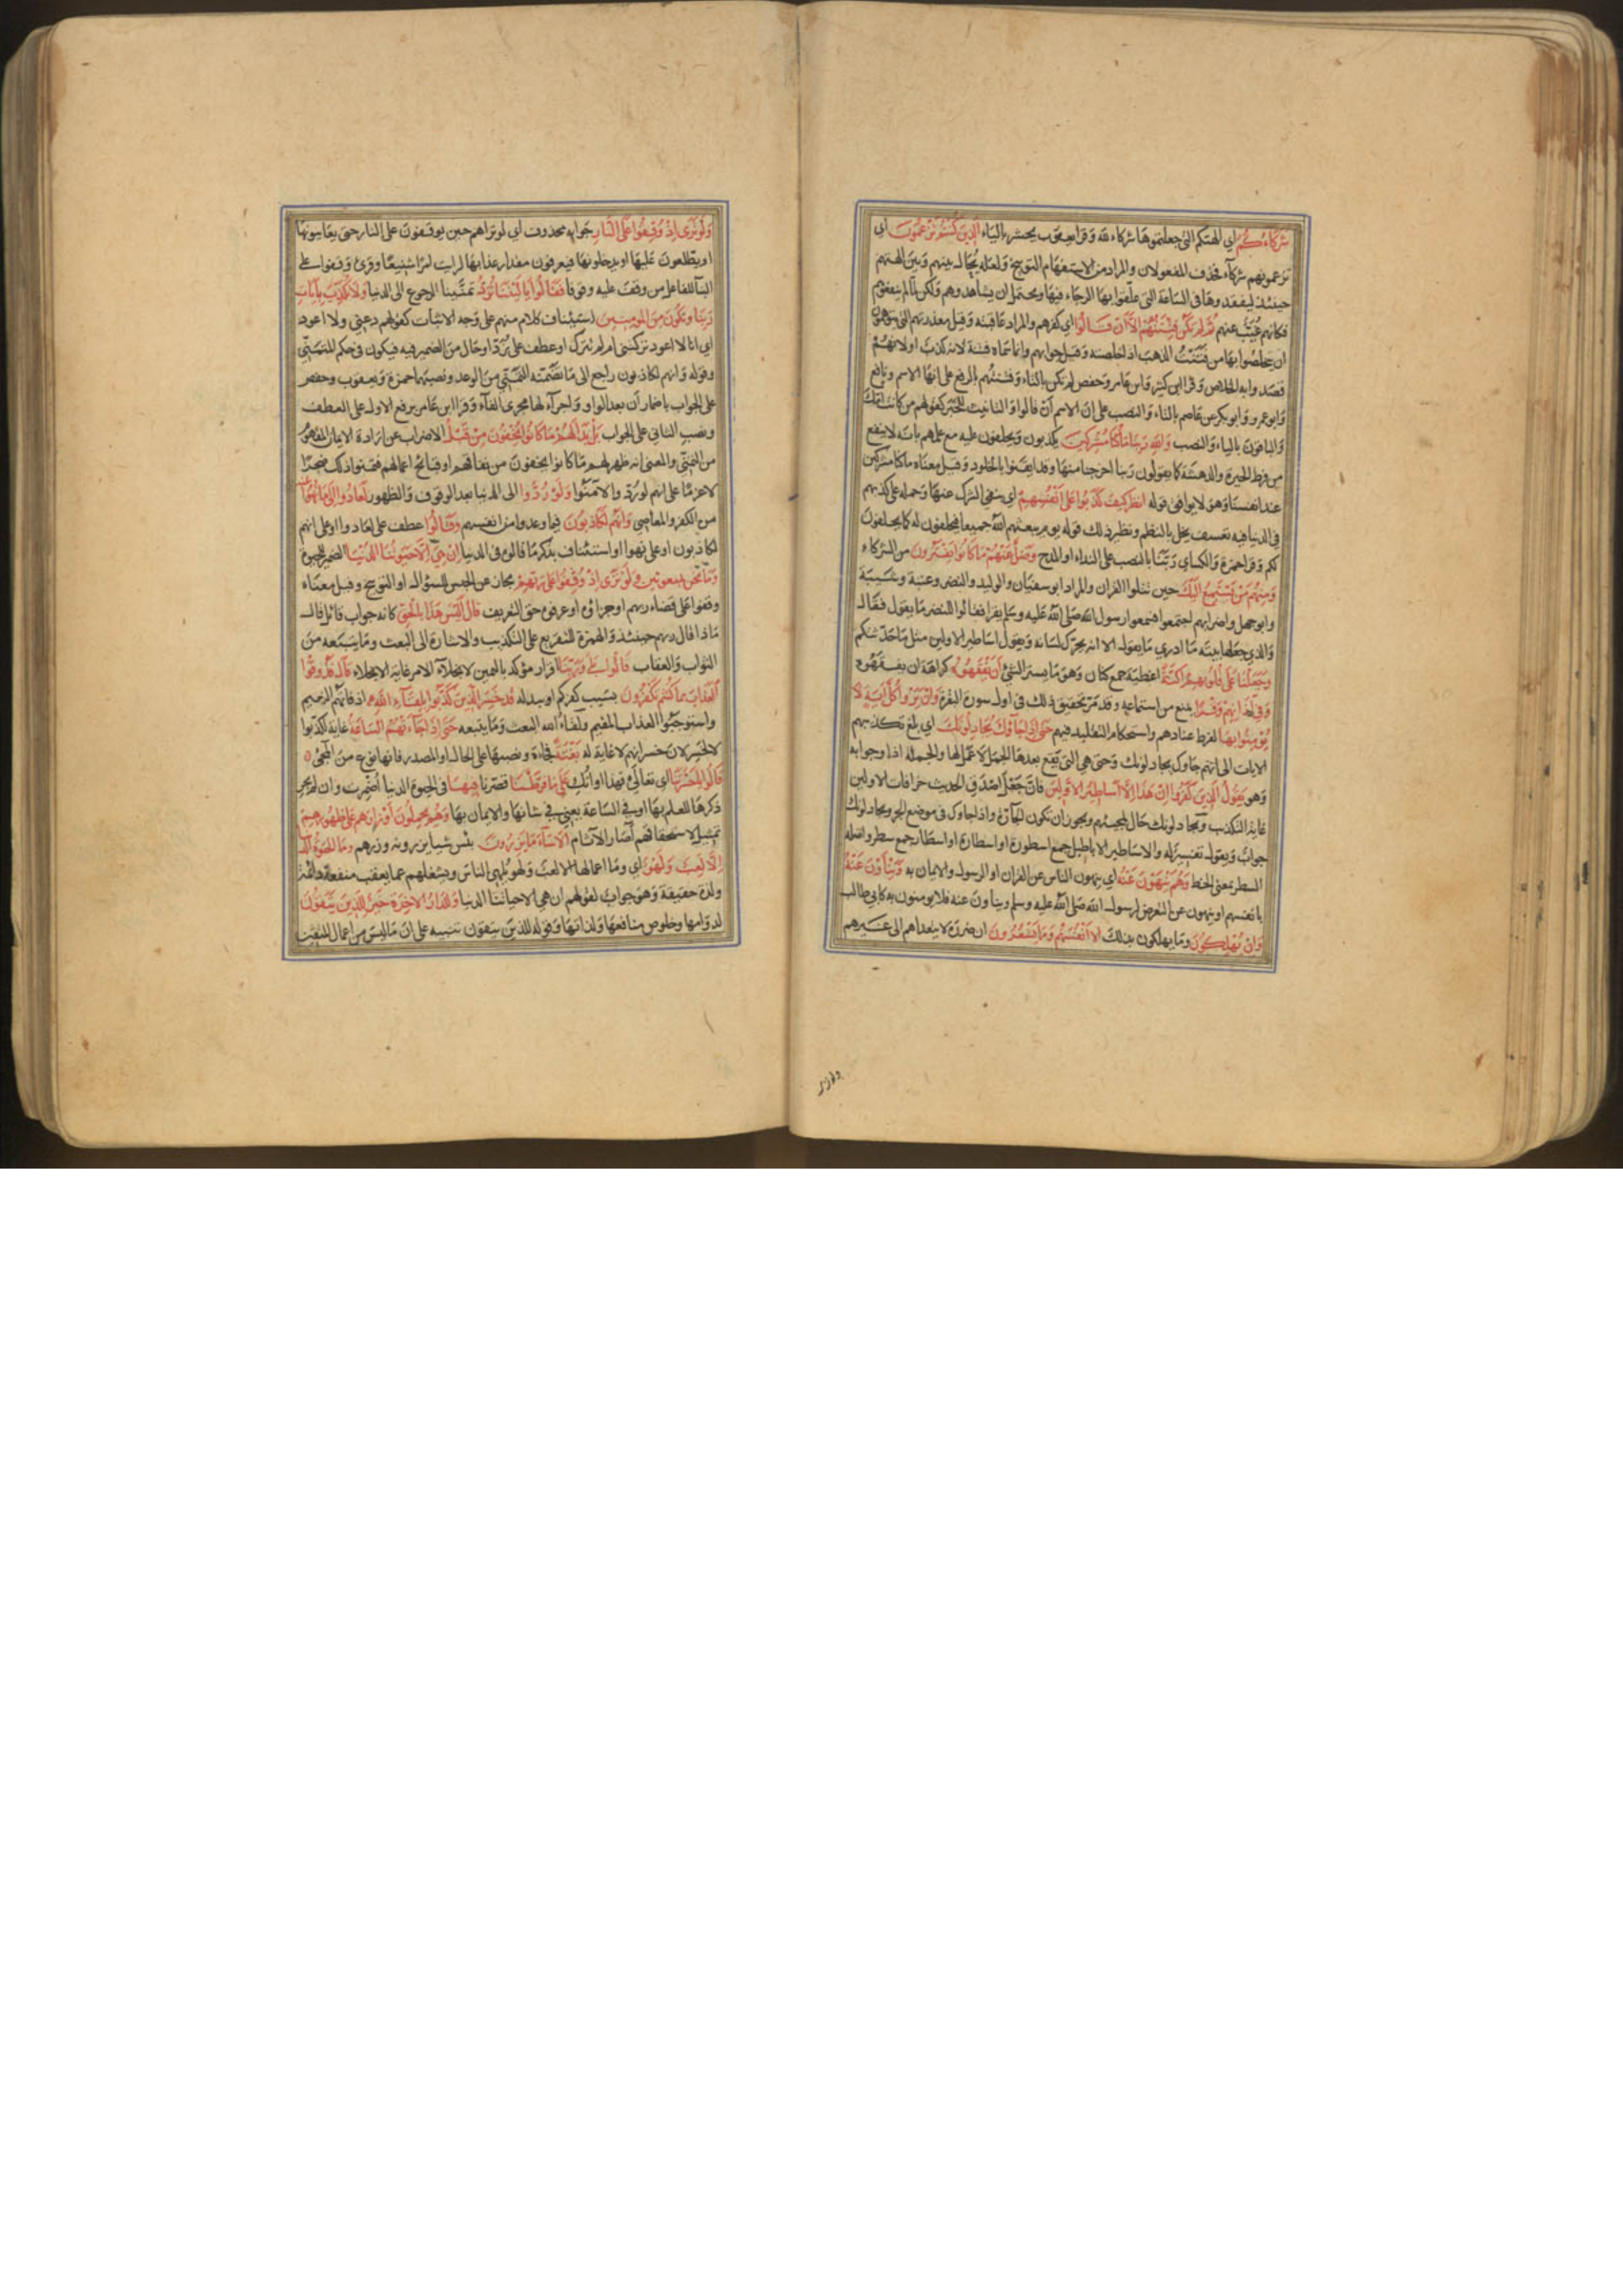 شركاءكم اي الهتكم التي جعلتموها شركاء لله وقرا يعقوب يحشر بالياء الذين كنتم تزعمون اي
تزعمونهم شركاء فحذف المفعولان والمراد من الاستفهام التوبيخ ولعله يحال بينهم وبين الهتهم
حينئذ ليفقدوها في الساعة التي علقوا بها الرجاء فيها ويحتمل ان يشاهدوهم ولكن لما لم ينفعوهم
فكانهم غيب عنهم ثم لم تكن فتنتهم الا ان قالوا اي كفرهم والمراد عاقبته وقيل معذرتهم التي يتوهمون
ان يخلصوا بها من فتنت الذهب اذا خلصته وقيل جوابهم وانما سماه فتنة لانه كذب او لانهم
قصدوا به الخلاص وقرا ابن كثير وابن عامر وحفص لم تكن بالتاء وفتنتهم بالرفع على انها الاسم ونافع
وابو عمرو وابو بكر عن عاصم بالتاء والنصب على ان الاسم ان قالوا والتانيث للخبر كقولهم من كانت امك
والباقون بالياء والنصب والله ربنا ما كنا مشركين يكذبون ويحلفون عليه مع علمهم بانه لا ينفع
من فرط الحيرة والدهشة كما يقولون ربنا اخرجنا منها وقد ايقنوا بالخلود وقيل معناه ما كنا مشركين
عند انفسنا وهو لا يوافق قوله انظر كيف كذبوا على انفسهم اي بنفي الشرك عنها وحمله على كذبهم
في الدنيا فيه تعسف يخل بالنظم ونظير ذلك قوله يوم يبعثهم الله جميعا فيحلفون له كما يحلفون
لكم وقرا حمزة والكساي ربنا بالنصب على النداء او المدح وضل عنهم ما كانوا يفترون من الشركاء
ومنهم من يستمع اليك حين تتلوا القران والمراد ابو سفيان والوليد والنضر وعتبة وشيبة
وابو جهل واضرابهم اجتمعوا فسمعوا رسول الله صلى الله عليه وسلم يقرا فقالوا للنضر ما يقول فقال
والذي جعلها بيته ما ادري ما يقول الا انه يحرك لسانه ويقول اساطير الاولين مثل ما حدثتكم
وجعلنا على قلوبهم اكنة اغطية جمع كنان وهو ما يستر الشئ ان يفقهوه كراهة ان يفقهوه
وفي اذانهم وقرا يمنع من استماعه وقد مر تحقيق ذلك في اول سورة البقرة وان يروا كل اية لا
يؤمنوا بها لفرط عنادهم واستحكام التقليد فيهم حتى اذا جاؤك يجادلونك اي بلغ تكذيبهم
الايات الى انهم جاؤك يجادلونك وحتى هي التي تقع بعدها الجمل لا عمل لها والجملة اذا وجوابه
وهو يقول الذين كفروا ان هذا الا اساطير الاولين فان جعل اصدق الحديث خرافات الاولين
غاية التكذيب ويجادلونك حال لمجيئهم ويجوز ان تكون الجارة واذا جاؤك في موضع الجر ويجادلونك
جواب ويقول تفسير له والاساطير الاباطيل جمع اسطورة او اسطارة او اسطار جمع سطر واصله
السطر بمعنى الخط وهم ينهون عنه اي ينهون الناس عن القران او الرسول والايمان به وينأون عنه
بانفسهم او ينهون عن التعرض لرسول الله صلى الله عليه وسلم وينأون عنه فلا يومنون به كابي طالب
وان يهلكون وما يهلكون بذلك الا انفسهم وما يشعرون ان ضرره لا يتعداهم الى غيرهم
ولو ترى
ولو ترى اذ وقفوا على النار جوابه محذوف اي لو تراهم حين يوقفون على النار حتى يعاينوها
او يطلعون عليها او يدخلونها فيعرفون مقدار عذابها لرايت امرا شنيعا وقرئ وقفوا على
البنآ للفاعل من وقف عليه وقوفا فقالوا يا ليتنا نرد تمنينا الرجوع الى الدنيا ولا نكذب بآيات
ربنا ونكون من المومنين استيناف كلام منهم على وجه الاثبات كقولهم دعني ولا اعود
اي انا لا اعود تركتني ام لم تترك او عطف على نرد او حال من الضمير فيه فيكون في حكم المتمني
وقوله وانهم لكاذبون راجع الى ما تضمنه التمني من الوعد ونصبهما حمزة ويعقوب وحفص
على الجواب باضمار ان بعد الواو واجرآء لها مجرى الفآء وقرا ابن عامر برفع الاول على العطف
ونصب الثاني على الجواب بل بدا لهم ما كانوا يخفون من قبل الاضراب عن ارادة الايمان المفهوم
من التمني والمعنى انه ظهر لهم ما كانوا يخفون من نفاقهم او قبائح اعمالهم فتمنوا ذلك ضجرا
لا عزما على انهم لو ردوا لآمنوا ولو ردوا الى الدنيا بعد الوقوف والظهور لعادوا لما نهوا عنه
من الكفر والمعاصي وانهم لكاذبون فيما وعدوا من انفسهم وقالوا عطف على لعادوا او على انهم
لكاذبون او على نهوا او استئناف بذكر ما قالوه في الدنيا ان هي الا حيوتنا الدنيا الضمير للحيوة
وما نحن بمبعوثين ولو ترى اذ وقفوا على ربهم مجاز عن الحبس للسؤال او التوبيخ وقيل معناه
وقفوا على قضاء ربهم او جزائه او عرفوه حق التعريف قال اليس هذا بالحق كانه جواب قائل قال
ماذا قال ربهم حينئذ والهمزة للتقريع على التكذيب والاشارة الى البعث وما يتبعه من
الثواب والعقاب قالوا بلى وربنا اقرار مؤكد باليمين لانجلآء الامر غاية الانجلاء قال فذوقوا
العذاب بما كنتم تكفرون بسبب كفركم او ببدله قد خسر الذين كذبوا بلقآء الله اذ فاتهم النعيم
واستوجبوا العذاب المقيم ولقاء الله البعث وما يتبعه حتى اذا جاءتهم الساعة غاية لكذبوا
لا لخسر لان خسرانهم لا غاية له بغتة فجاءة ونصبها على الحال او المصدر فانها نوع من المجئ
قالوا يا حسرتنا اي تعالي فهذا اوانك على ما فرطنا قصرنا فيها في الحيوة الدنيا اضمرت وان لم يجر
ذكرها للعلم بها او في الساعة يعني في شانها والايمان بها وهم يحملون اوزارهم على ظهورهم
تمثيل لاستحقاقهم آصار الآثام الا ساء ما يزرون بئس شيا يزرونه وزرهم وما الحيوة الدنيا
الا لعب ولهو اي وما اعمالها الا لعب ولهو يلهي الناس ويشغلهم عما يعقب منفعة دائمة
ولذة حقيقة وهو جواب لقولهم ان هي الا حياتنا الدنيا وللدار الاخرة خير للذين يتقون
لدوامها وخلوص منافعها ولذاتها وقوله للذين يتقون تنبيه على ان ما ليس من اعمال المتقين